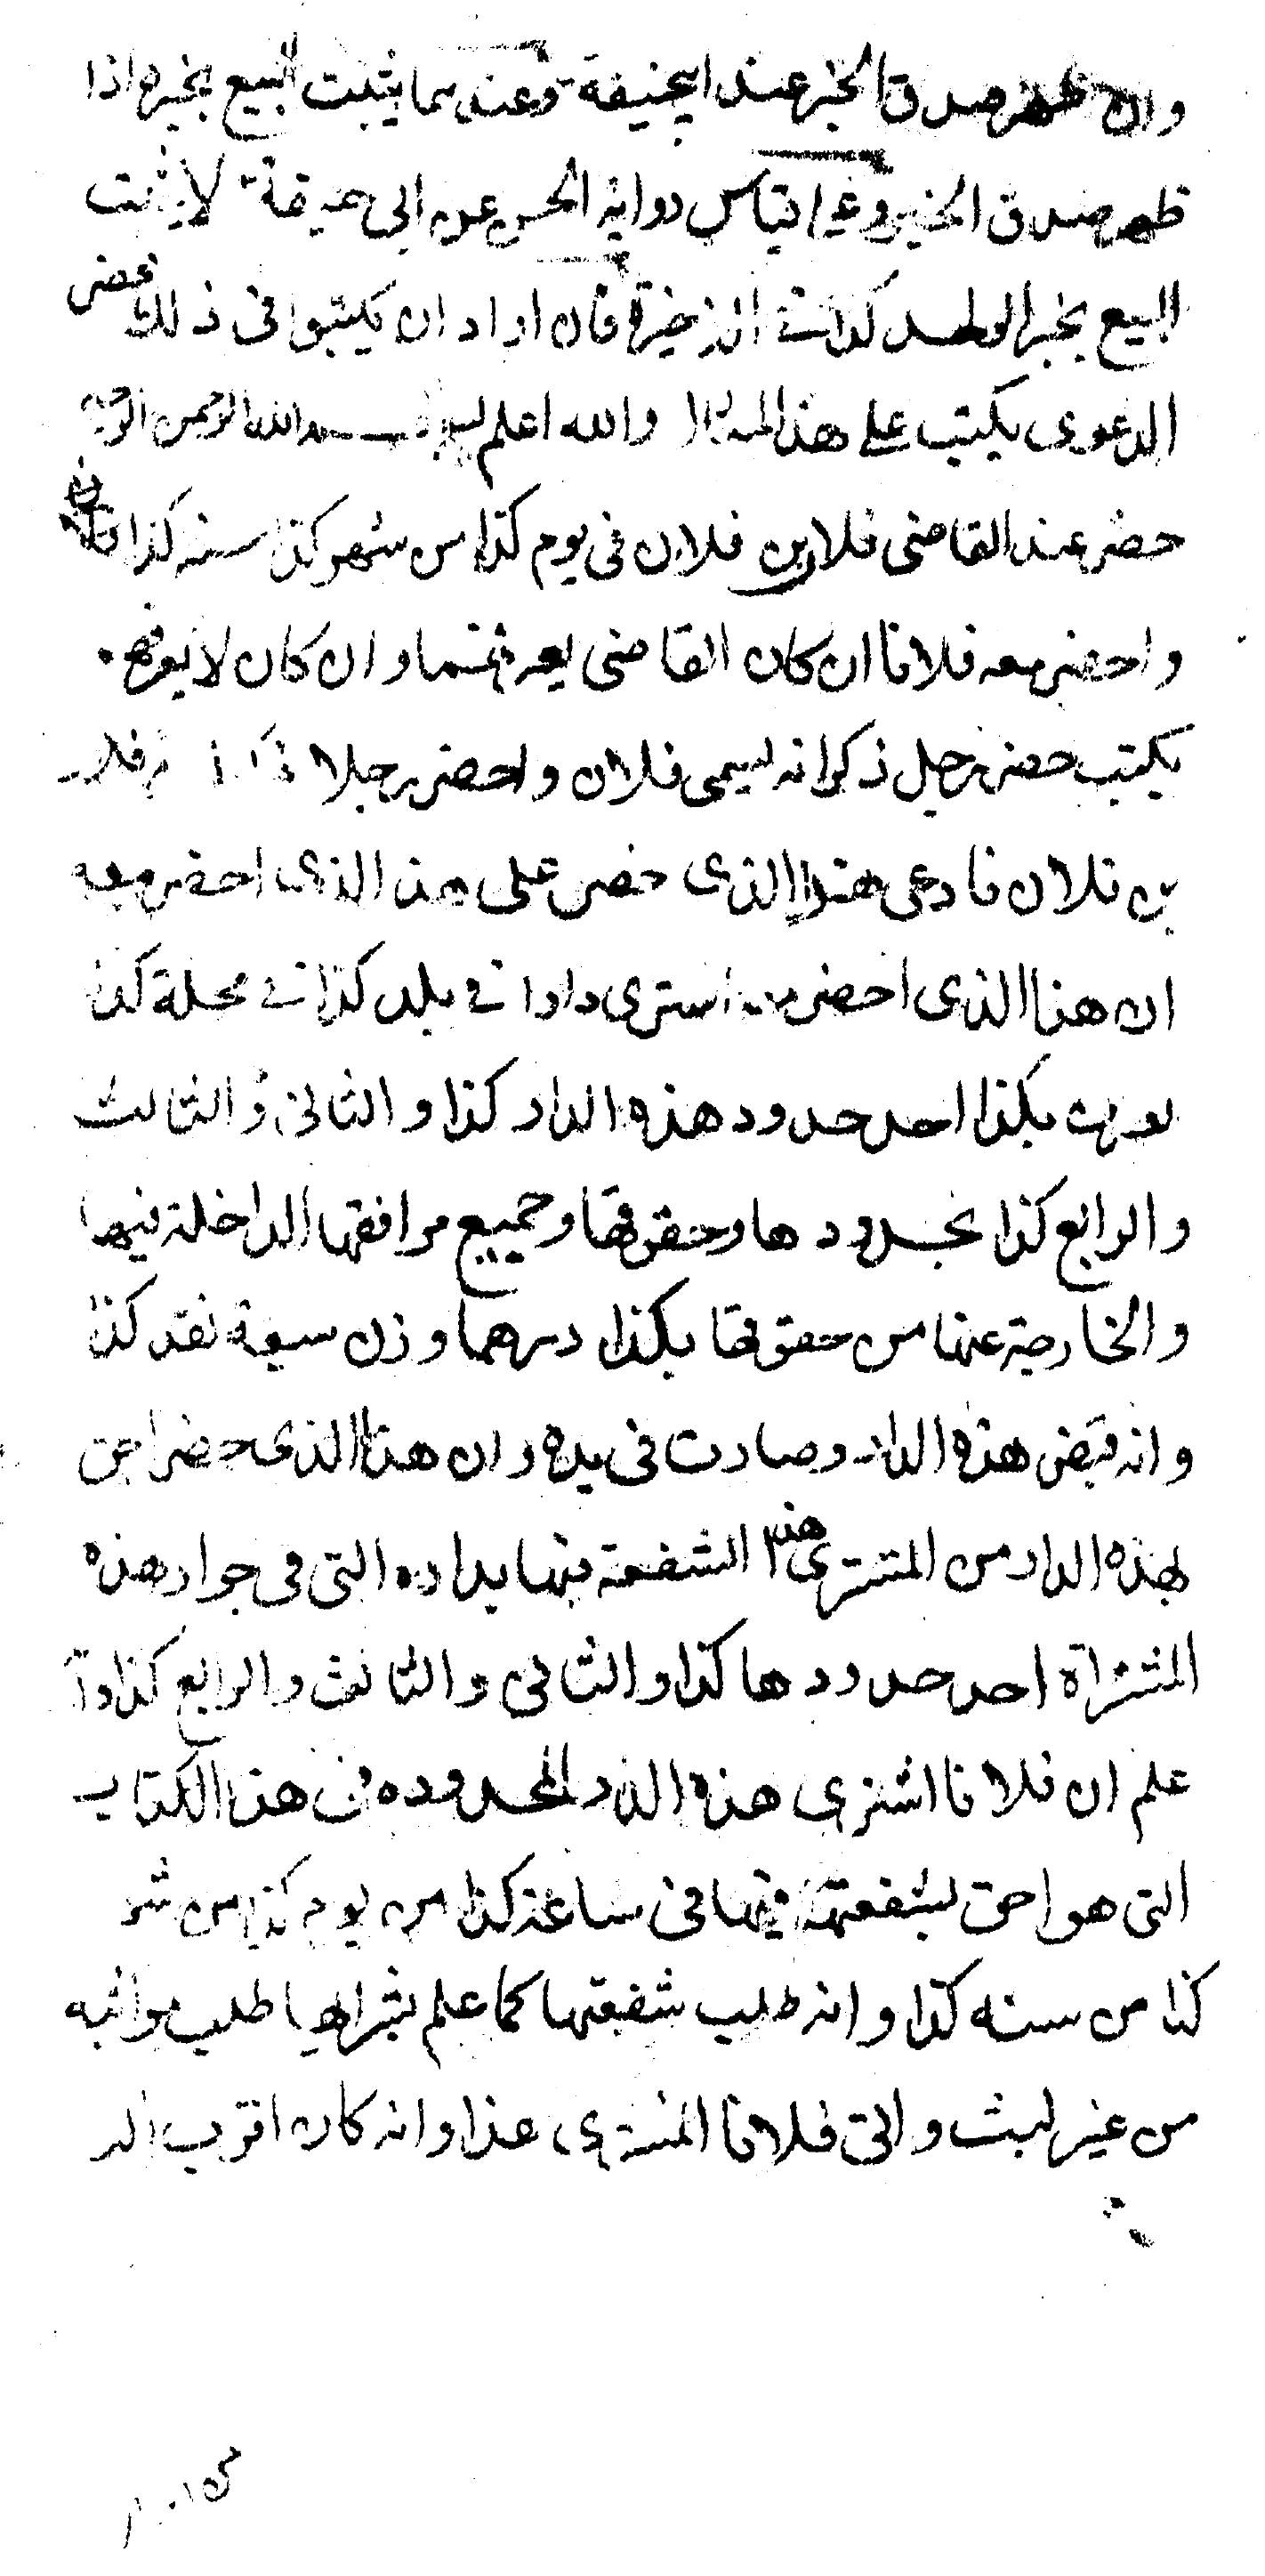 وان ظهر صدق الخبر عند ابيحنيفة وعندهما يثبت البيع بخبره اذا
ظهر صدق الخبر وعلى قياس رواية الحسن عن ابى حنيفة لا يثبت
البيع بخبر الواحد كذا فى الذخيرة فان اراد ان يكتبوا فى ذلك محضر
الدعوى يكتب على هذا المثال والله اعلم بسم الله الرحمن الرحيم
حضر عند القاضى فلان بن فلان فى يوم كذا من شهر كذا سنه كذا فلان
واحضر معه فلانا ان كان القاضى يعرفهما وان كان لا يعرفهما
يكتب حضر رجل ذكر انه يسمى فلان واحضر رجلا ذكر انه فلان
بن فلان فادعى هذا الذى حضر على هذا الذى احضر معه
ان هذا الذى احضر معه اشترى دارا فى بلد كذا فى محلة كذا
تعرف بكذا احد حدود هذه الدار كذا والثانى والثالث
والرابع كذا بحدودها وحقوقها وجميع مرافقها الداخلة فيها
والخارجة عنها من حقوقها بكذا درهما وزن سبعة نقد كذا
وانه قبض هذه الدار وصارت فى يده وان هذا الذى حضر احق
بهذه الدار من المشترى هذا الشفعة فيها بداره التى فى جوار هذه
المشتراة احد حدودها كذا والثانى والثالث والرابع كذا وانه
علم ان فلانا اشترى هذه الدار المحدوده فى هذا الكتاب
التى هو احق بشفعتها فيها فى ساعة كذا من يوم كذا من شهر
كذا من سنه كذا وانه طلب شفعتها كما علم بشرائها طلب مواثبه
من غير لبث واتى فلانا المشترى هذا وانه كان اقرب اليه